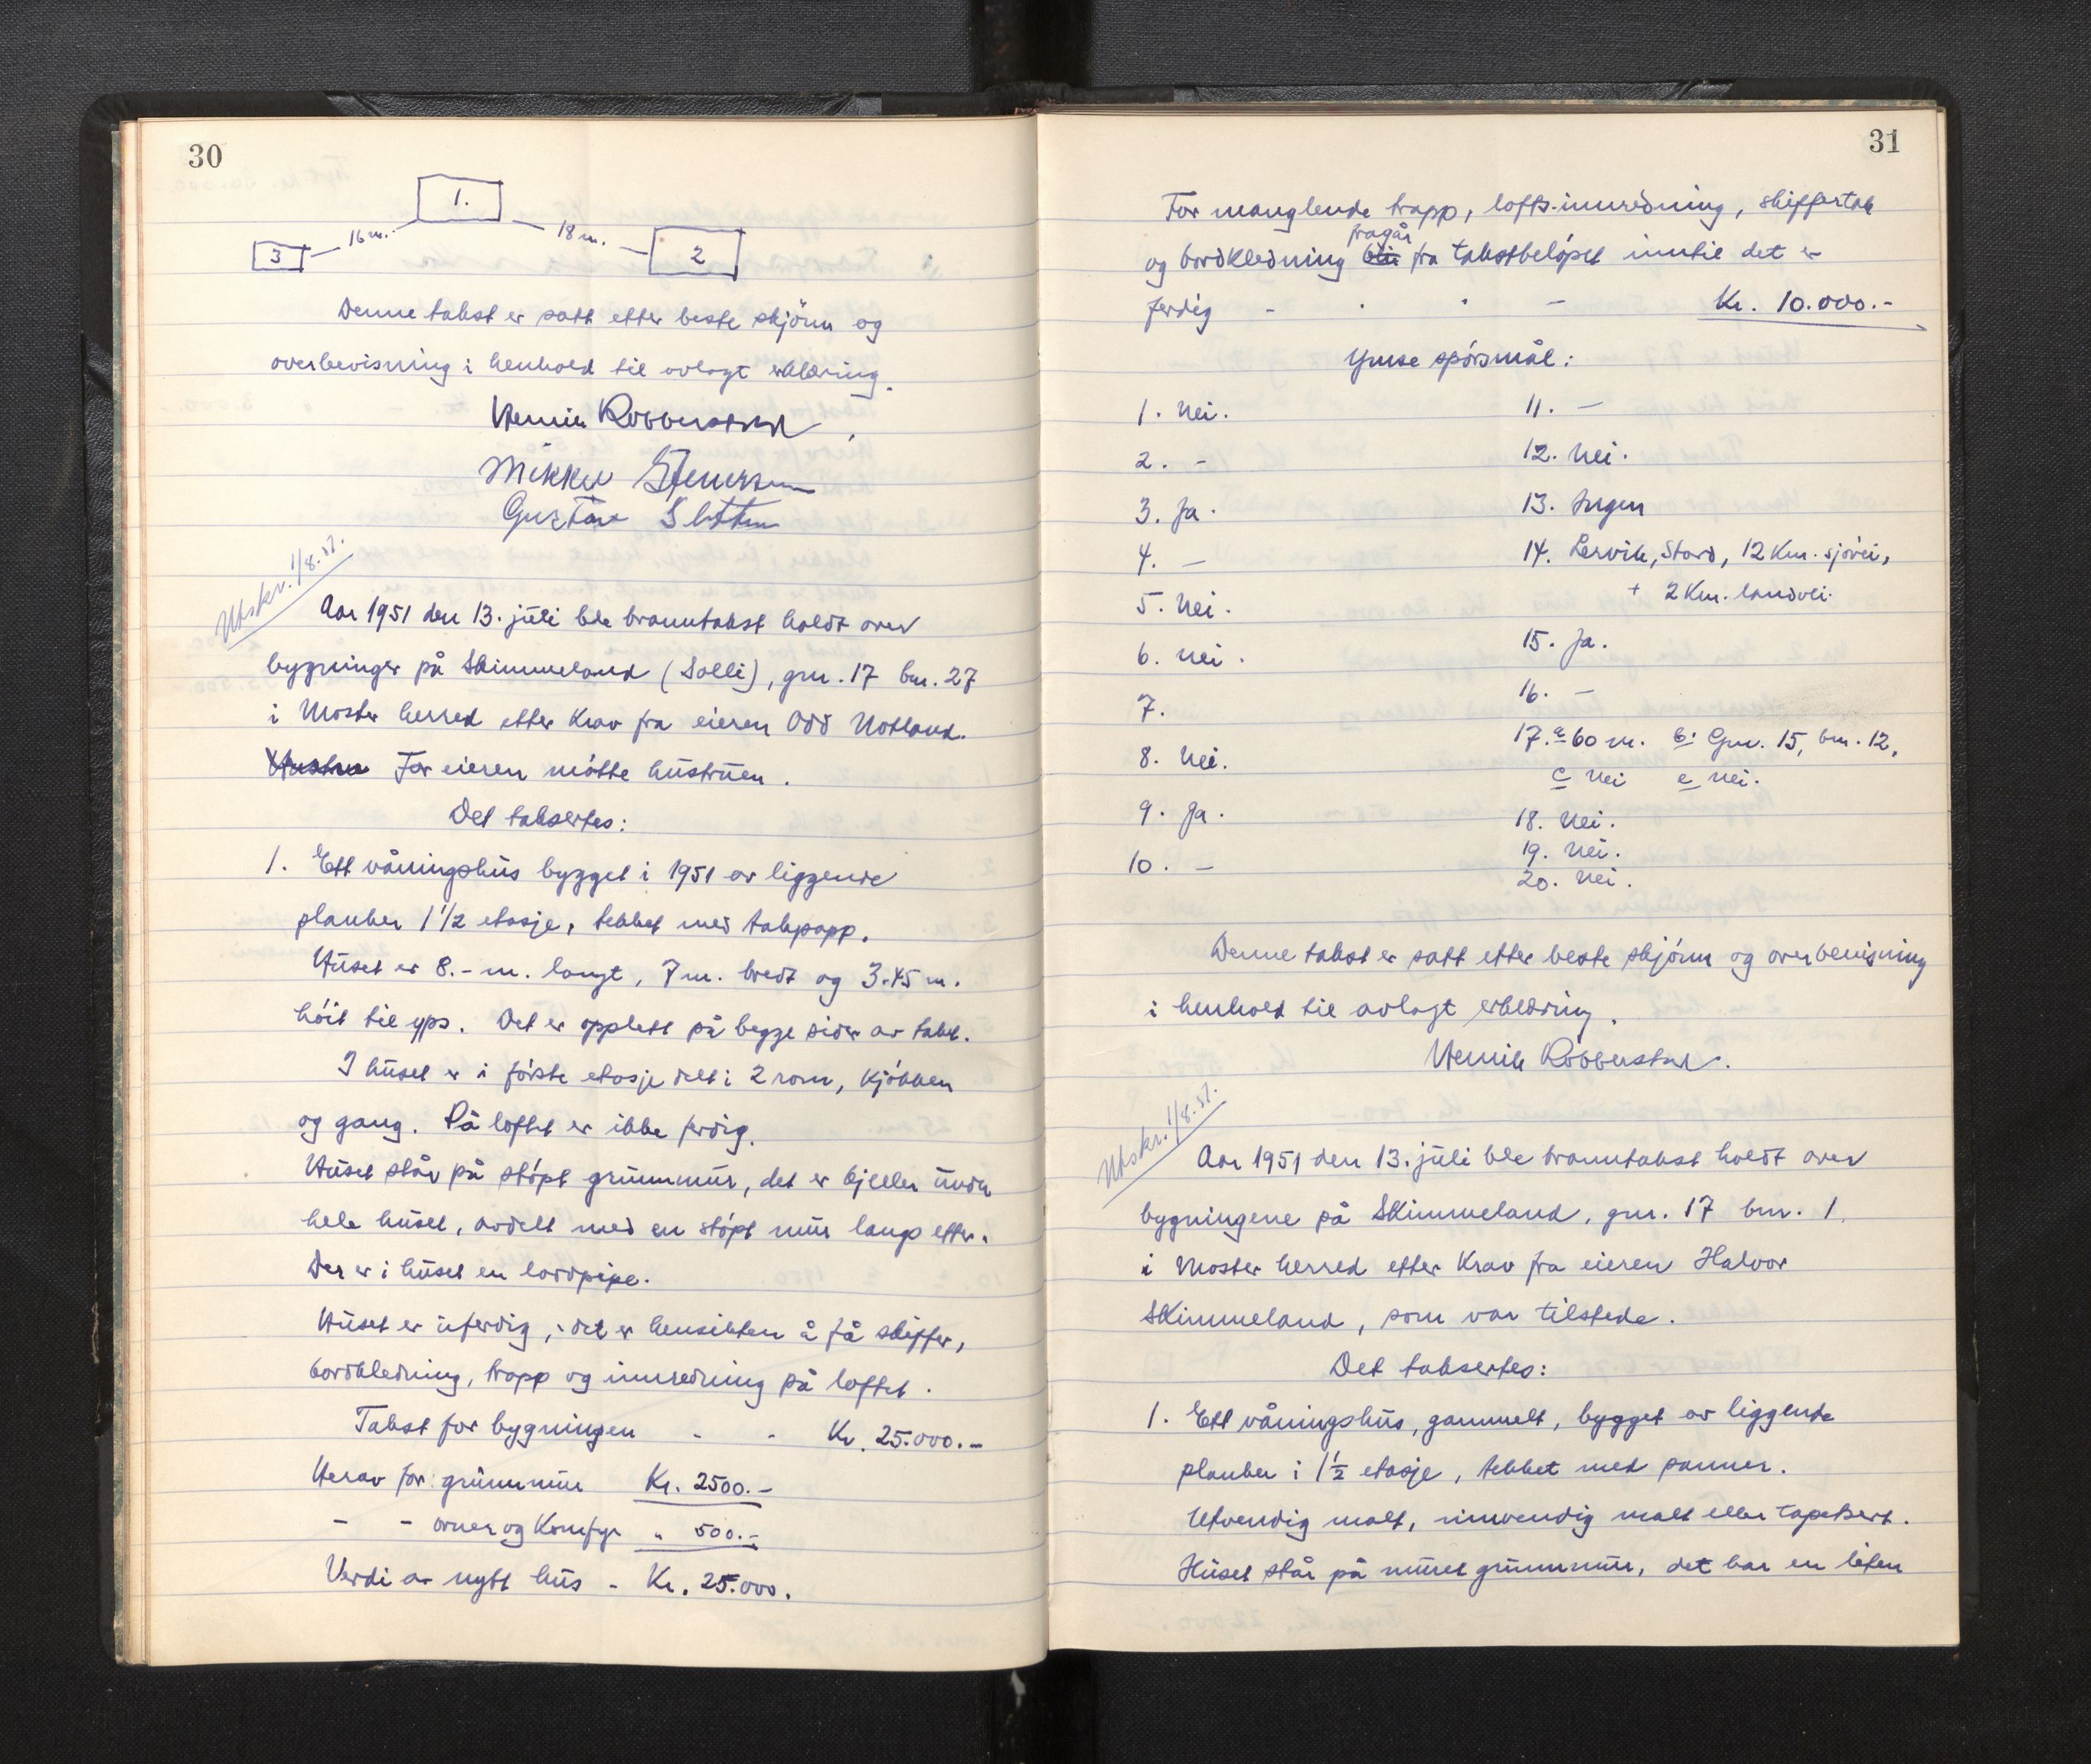 30
1.
16 m.
18 m.
3
2
Denne takst er satt etter beste skjönn og
overbevisning i henhold til avlagt erklæring.
Henrik Robberstad
Mikkel
Gustav
Utskr. 1/8.51.
Aar 1951 den 13. juli ble branntakst holdt over
bygninger på Skimmeland (Solli), gnr. 17 bnr. 27
i Moster herred etter krav fra eieren Odd Notland.
For eieren mötte hustruen.
Det taksertes:
1. Ett våningshus bygget i 1951 av liggende
planker 1 1/2 etasje, tekket med takpapp.
Huset er 8.- m. langt, 7 m. bredt og 3.45 m.
höit til gps. Det er opplett på begge sider av taket.
I huset er i förste etasje delt i 2 rom, kjökken
og gang. På loftet er ikke ferdig.
Huset står på stöpt grunnmur, det er kjeller under
hele huset, avdelt med en stöpt mur langs etter.
Der er i huset en lordpipe.
Huset er uferdig, det er hensikten å få skiffer,
bordkledning, trapp og innredning på loftet.
Takst for bygningen - - Kr. 25.000.-
Herav for grunnmur Kr. 2500.-
- - ovner og komfyr " 500.-
Verdi av nytt hus - Kr. 25.000.
31
For manglende trapp, lofts-innredning, skiffertak
fragår
og bordkledning blir fra takstbelöpet inntil det er
ferdig - . . - Kr. 10.000.-
Ymse spörsmål:
1. Nei.
2. -
3. Ja.
4. -
5. Nei.
6. Nei.
7.
8. Nei.
9. Ja.
10. -
11. -
12. Nei.
13. Ingen
14. Lervik, Stord, 12 Km. sjövei,
+ 2 Km. landvei.
15. Ja.
16. -
17. a 60 m. b. Gnr. 15, bnr. 12,
c Nei e Nei.
18. Nei.
19. Nei.
20. Nei.
Denne takst er satt etter beste skjönn og overbevisning
i henhold til avlagt erklæring.
Henrik Robberstad.
Utskr. 1/8.51.
Aar 1951 den 13. juli ble branntakst holdt over
bygningene på Skimmeland, gnr. 17 bnr. 1.
i Moster herred etter krav fra eieren Halvor
Skimmeland, som var tilstede.
Det taksertes:
1. Ett våningshus, gammelt, bygget av liggende
planker i 1 1/2 etasje, tekket med panner.
Utvendig malt, innvendig malt eller tapetsert.
Huset står på muret grunnmur, det har en liten